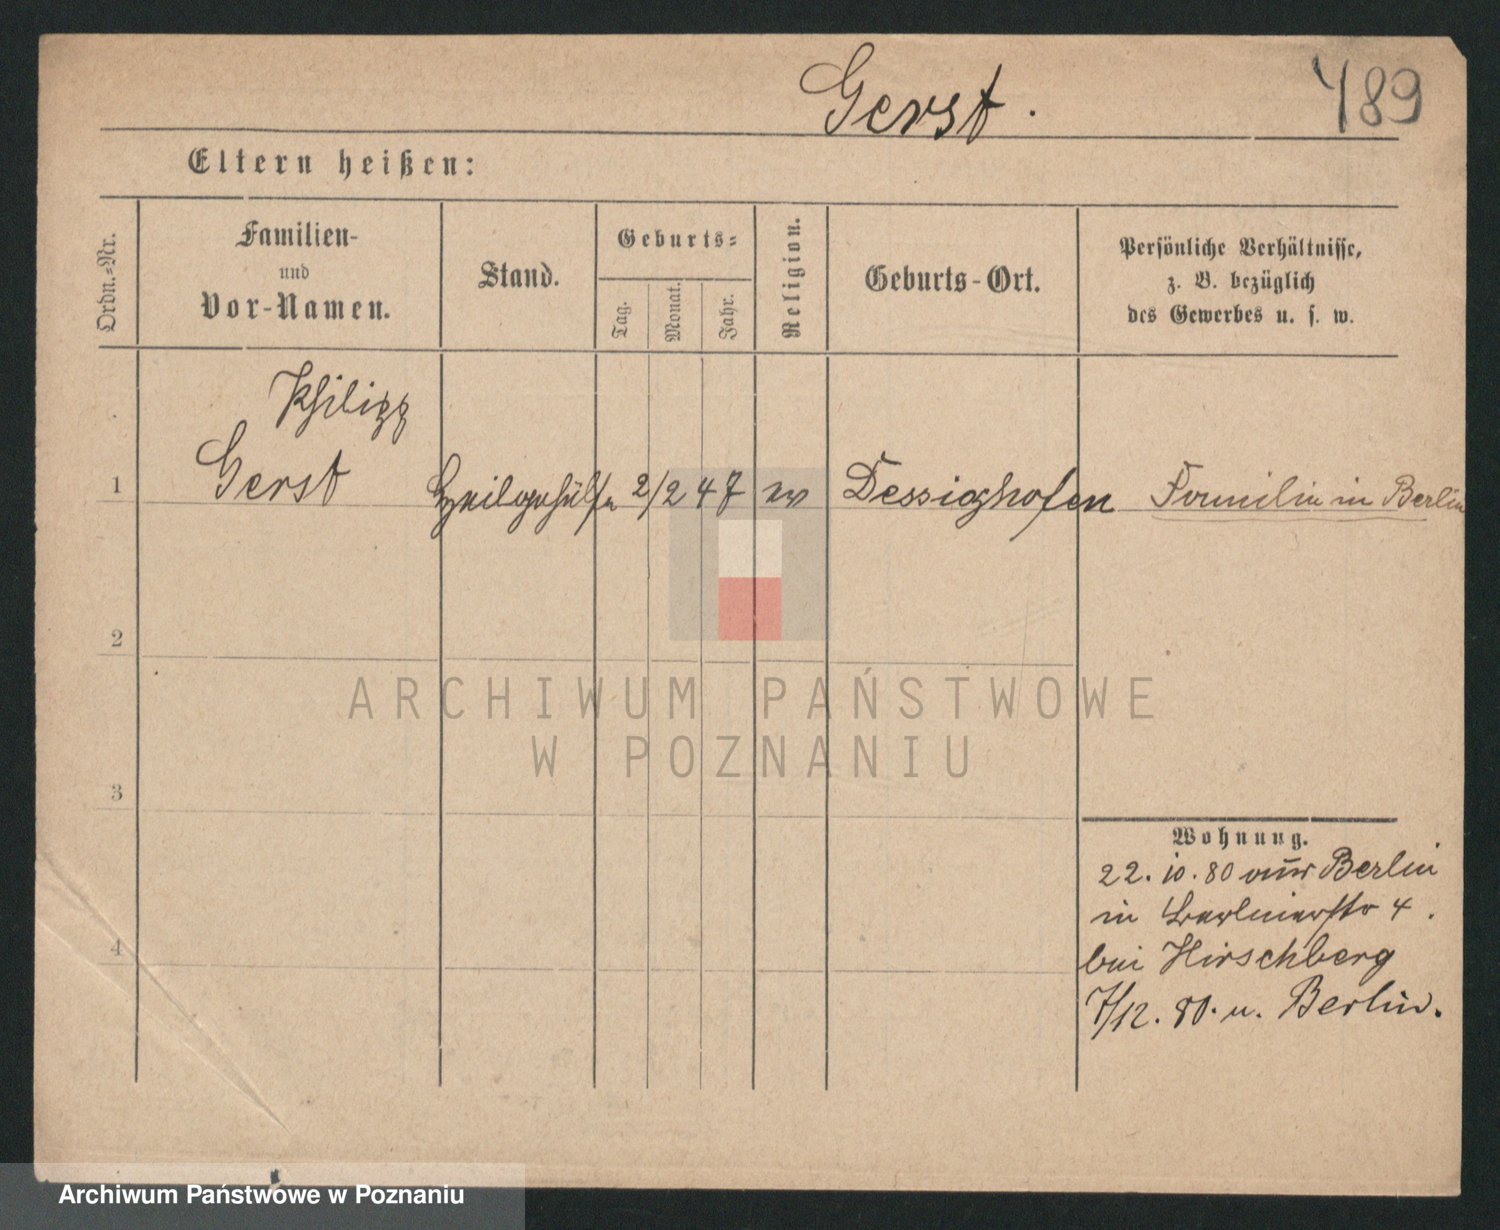 Gerst.
489
Eltern heißen:
Ordn.=Nr.
Familien-
und
Vor-Namen.
Stand.
Geburts=
Tag.
Monat.
Jahr.
Religion.
Geburts-Ort.
Persönliche Verhältnisse,
z. B. bezüglich
des Gewerbes u. s. w.
Philipp
1 Gerst Heilgehülfe 2/2 47 ev Dessighofen Familie in Berlin
2
3
4
Wohnung.
22. 10. 80 aus Berlin
in Berlinerstr 4.
bei Hirschberg
7/12. 80. n. Berlin.
ARCHIWUM PAŃSTWOWE
W POZNANIU
Archiwum Państwowe w Poznaniu